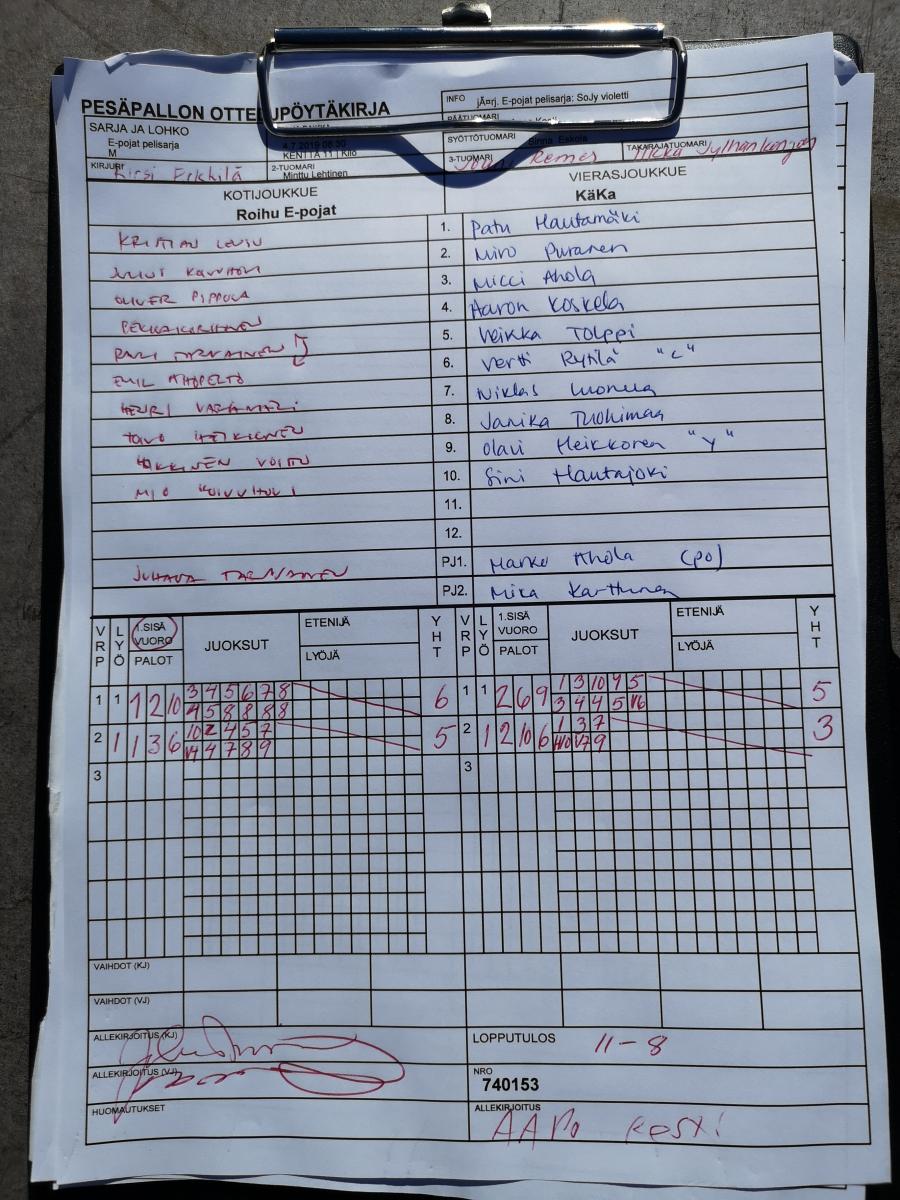 PESÄPALLON OTTELUPÖYTÄKIRJA
INFO jÃ¤rj. E-pojat pelisarja: SoJy violetti
SARJA JA LOHKO
E-pojat pelisarja
M
4.7.2019 08:30
KENTTÄ 11 | Kilo
PÄÄTUOMARI
SYÖTTÖTUOMARI Sinna Eskola
KIRJURI Kirsi Erkkilä
2-TUOMARI Minttu Lehtinen
3-TUOMARI Remes
TAKARAJATUOMARI Ilkka Sylhänkangas
KOTIJOUKKUE
Roihu E-pojat
VIERASJOUKKUE
KäKa
KRISTIAN 1. Patu Hautamäki
2. Miro Puranen
OLIVER PIPPOLA 3. Micci Ahola
4. Aaron Koskela
TARVAINEN 5. Veikka Tolppi
EMIL AHOPELTO 6. Vertti Rytilä "C"
HENRI 7. Niklas Luonua
TOIVO HEIKKINEN 8. Janika Tuohimaa
HÄKKINEN VOITTO 9. Olavi Heikkoren "Y"
MIO KOIVUTUPI 10. Sini Hautajoki
11.
12.
JUHANA TARVAINEN PJ1. Marko Ahola (po)
PJ2. Mika Karttunen
VRP LYÖ 1.SISÄ VUORO PALOT JUOKSUT ETENIJÄ LYÖJÄ YHT VRP LYÖ 1.SISÄ VUORO PALOT JUOKSUT ETENIJÄ LYÖJÄ YHT
1 1 1 2 10 3 4 5 6 7 8 6 1 1 2 6 9 1 3 10 9 5 5
4 5 8 8 8 8 3 4 4 5 V6
2 1 1 3 6 10 2 4 5 7 5 2 1 2 10 6 1 3 7 3
V1 4 7 8 9 V10 V7 9
3 3
VAIHDOT (KJ)
VAIHDOT (VJ)
ALLEKIRJOITUS (KJ)
LOPPUTULOS 11-8
ALLEKIRJOITUS (VJ)
NRO
740153
HUOMAUTUKSET
ALLEKIRJOITUS
AAPO KOSKI